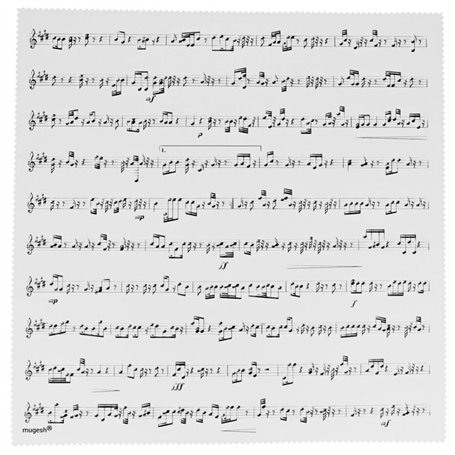 mf
p
1.
mp
ff
mp
f
fff
mf
mugesh®